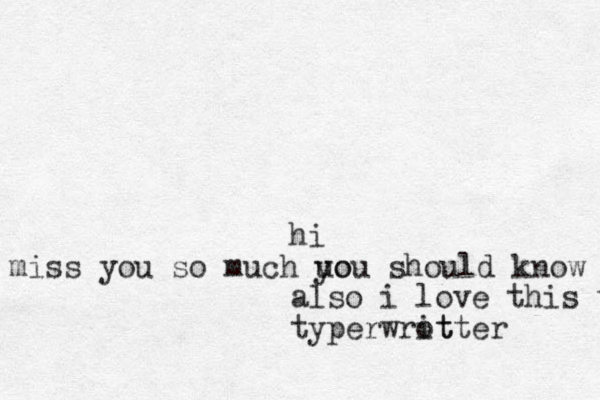 hi
miss you so much you should know
also i love this t
typerwritter